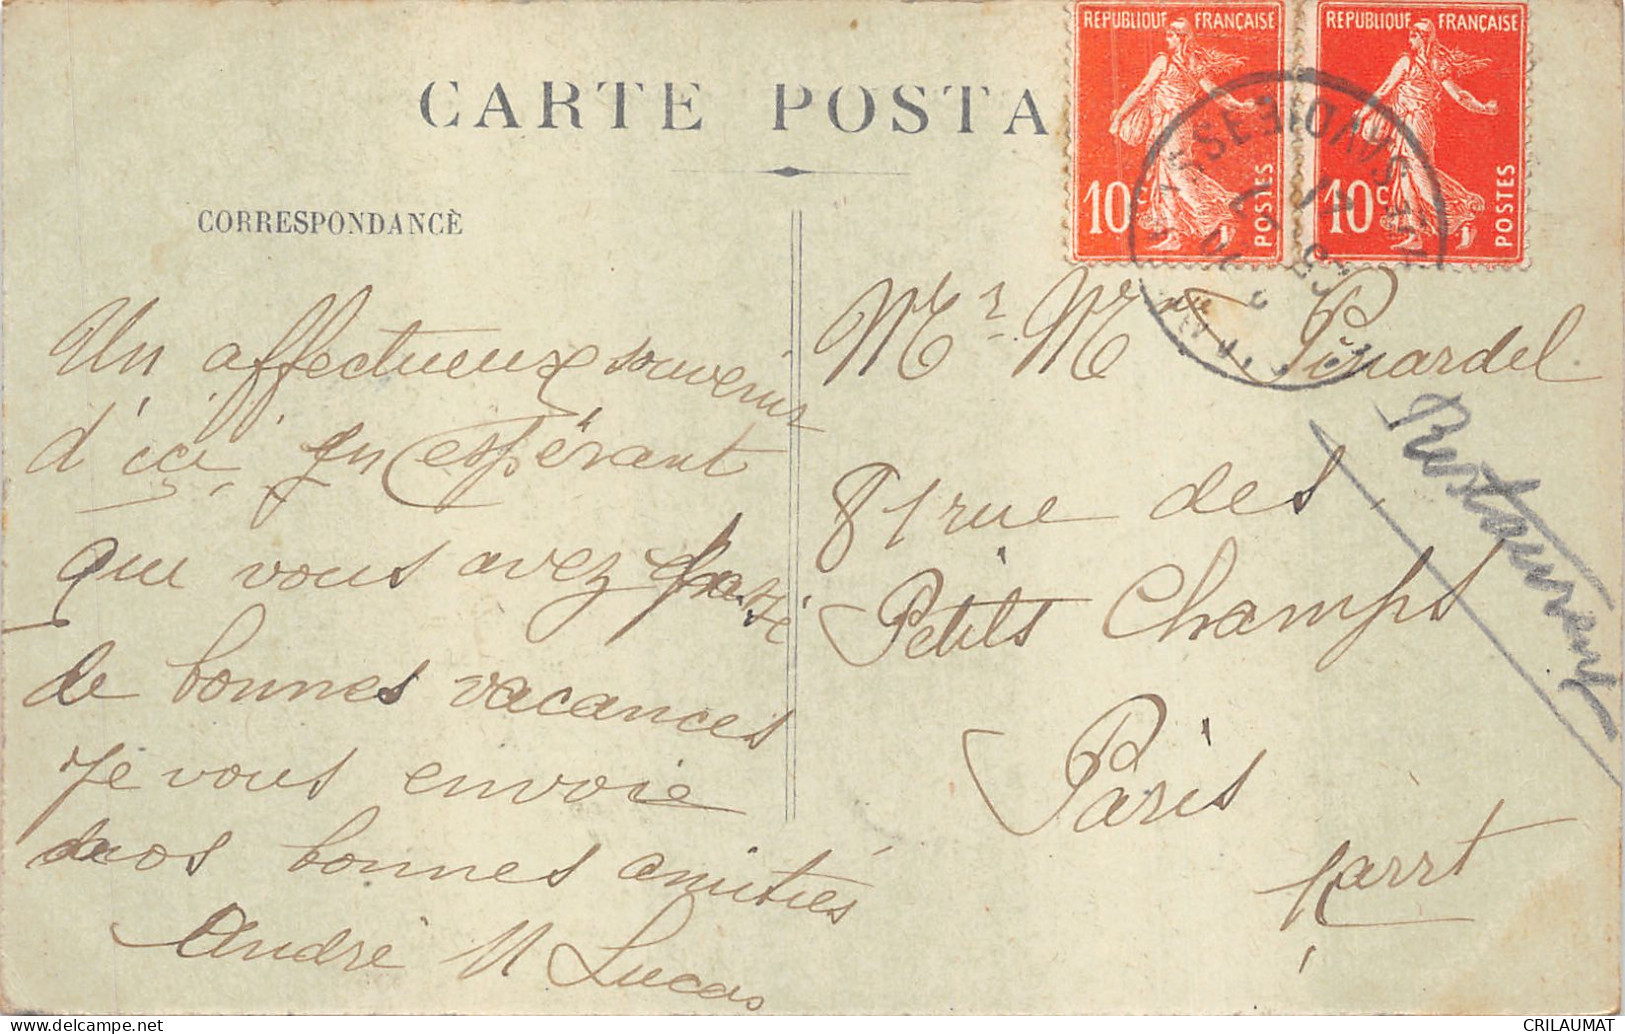 REPUBLIQUE FRANÇAISE
10c
POSTES
REPUBLIQUE FRANÇAISE
10c
POSTES
CARTE POSTA
CORRESPONDANCE
Un affectueux souvenir
d'ici, en espérant
que vous avez passé
de bonnes vacances
Je vous envoie
nos bonnes amitiés
André M Lucas
Mr Mme Pinardel
81 rue des
Petits Champs
Paris
1 arrt
Restaurant
CRILAUMAT